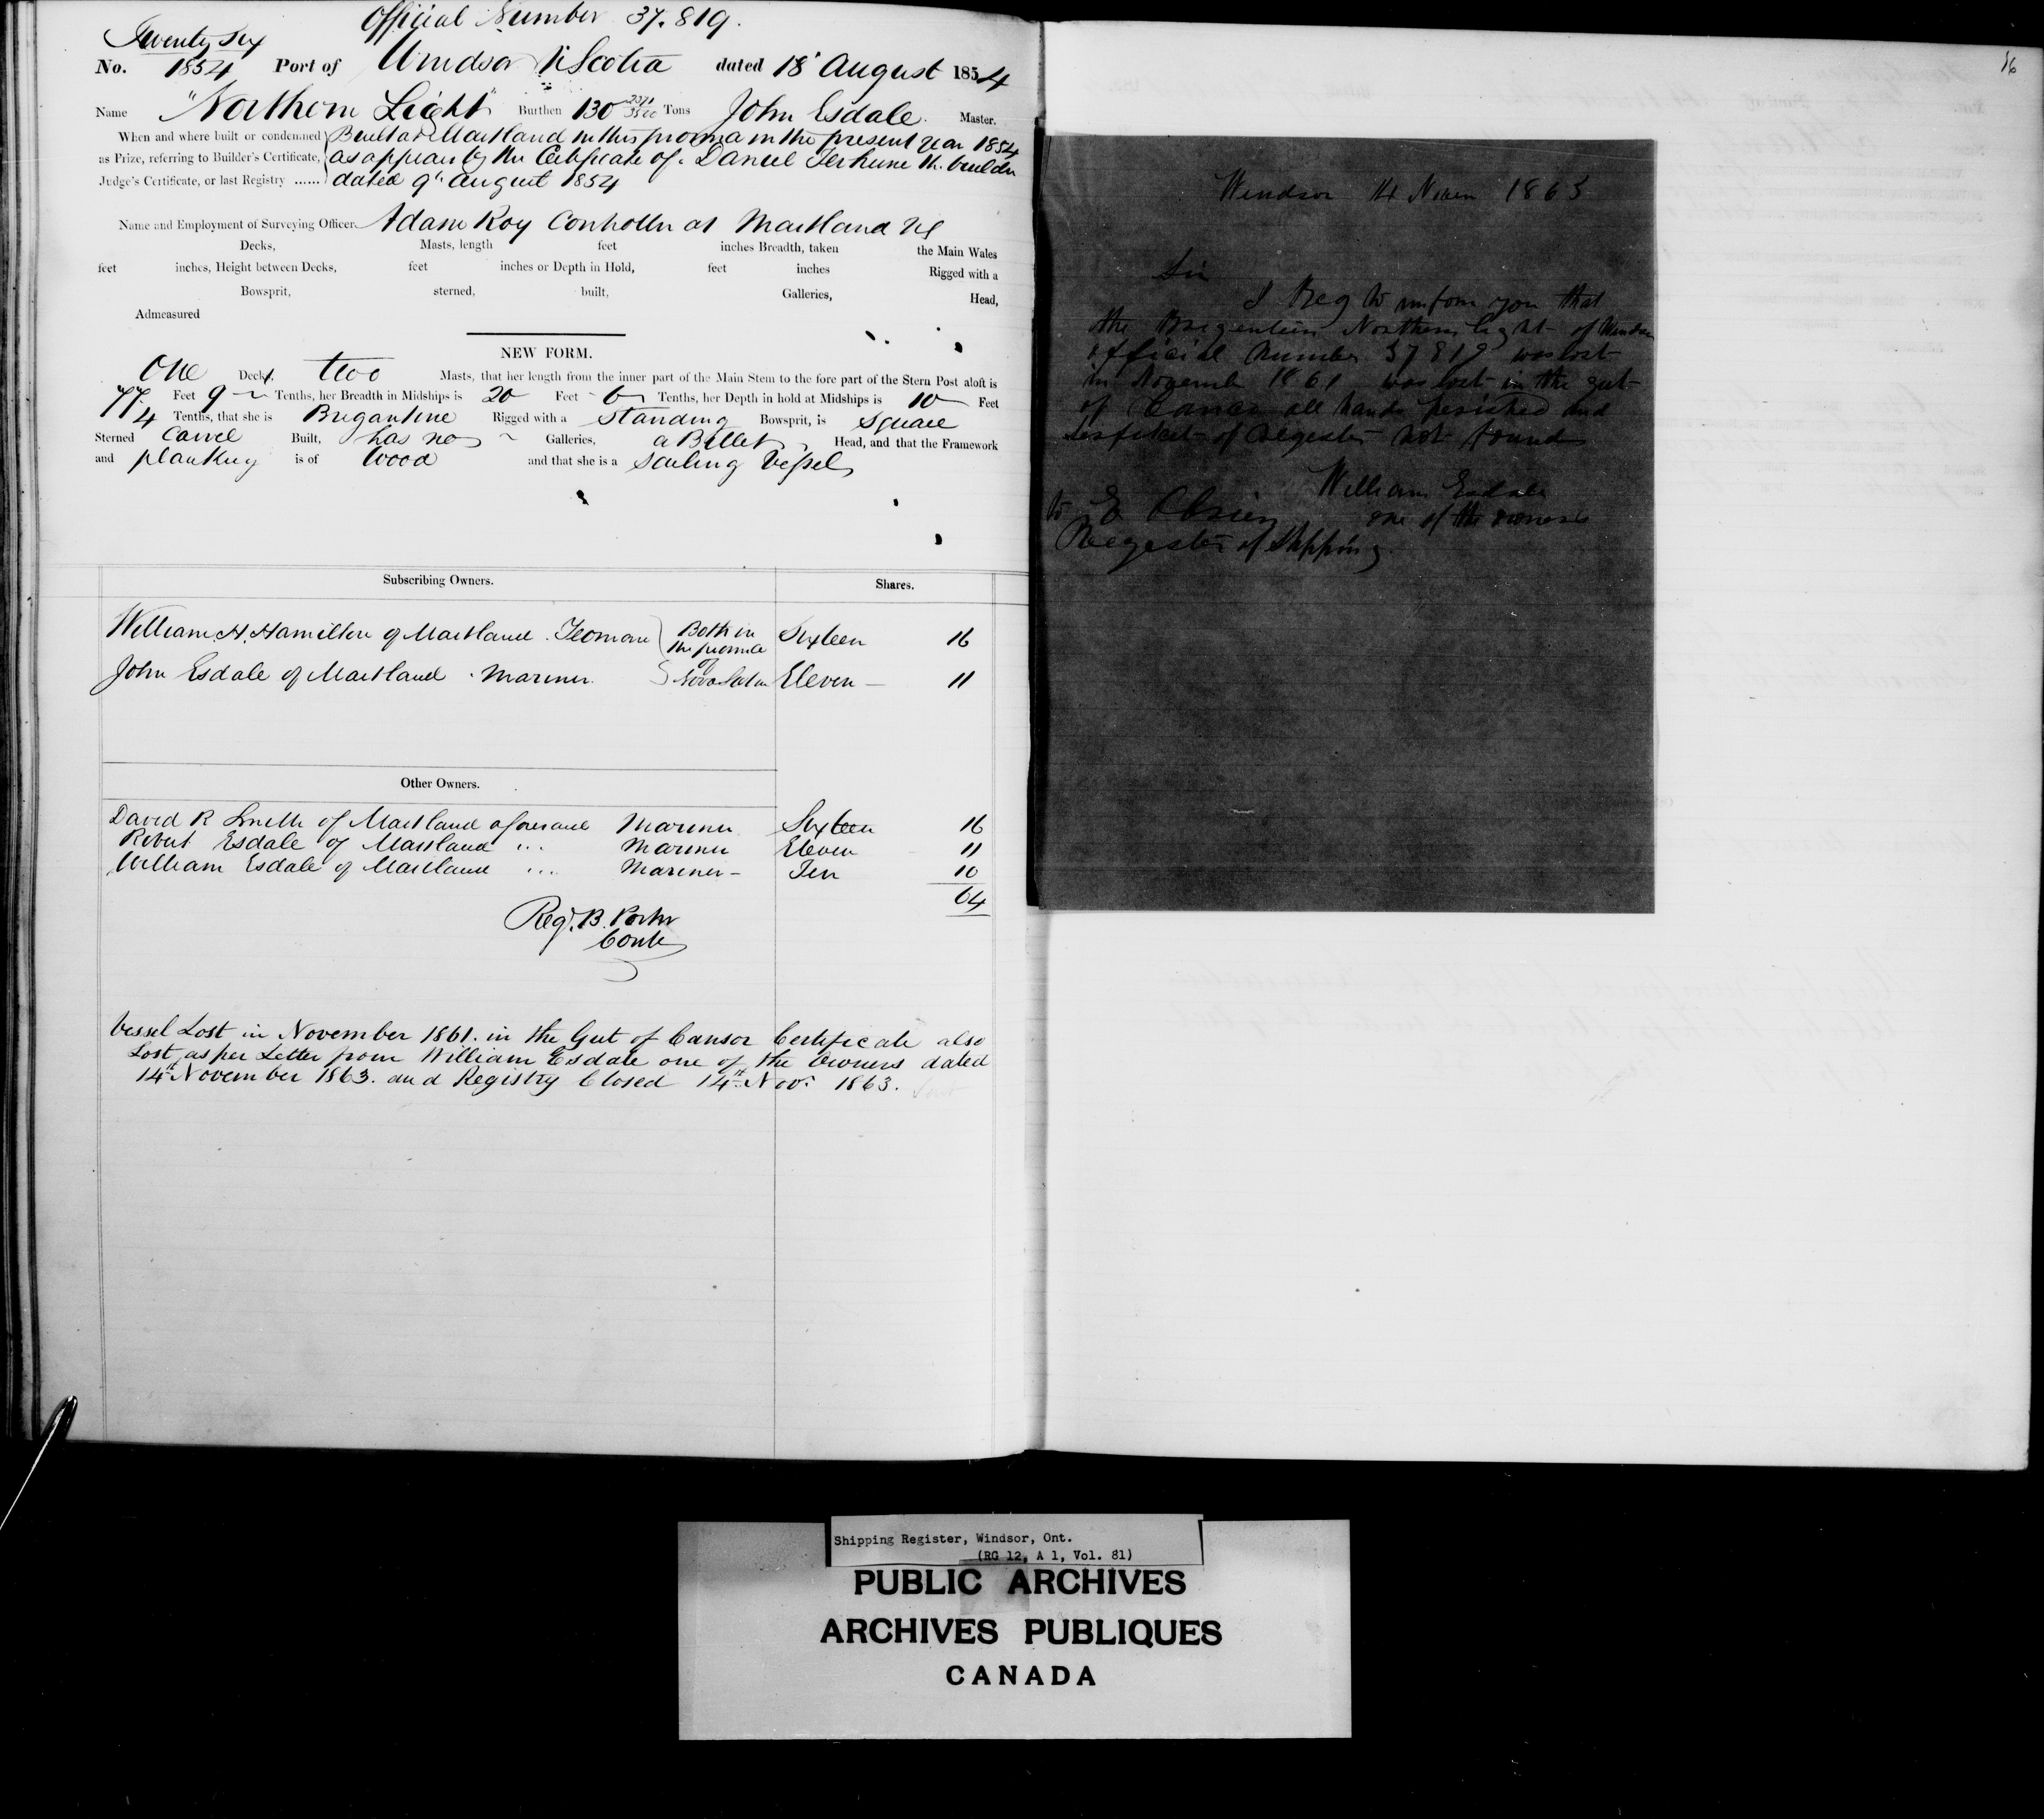 Official Number 37.819.
Twenty Six
No. 1854 Port of Windsor N Scotia dated 18 August 1854
Name "Northern Light" Burthen 130 2371/3500 Tons John Esdale. Master.
When and where built or condemned Built at Maitland in this province in the present year 1854
as Prize, referring to Builder's Certificate, as appears by the Certificate of Daniel Terhune the builder
Judge's Certificate, or last Registry ...... dated 9th August 1854
Name and Employment of Surveying Officer Adam Roy Controller at Maitland NS
Decks, Masts, length feet inches Breadth, taken the Main Wales
feet inches, Height between Decks, feet inches or Depth in Hold, feet inches Rigged with a
Bowsprit, sterned, built, Galleries, Head,
Admeasured
NEW FORM.
One Deck, two Masts, that her length from the inner part of the Main Stem to the fore part of the Stern Post aloft is
77 Feet 9 Tenths, her Breadth in Midships is 20 Feet 6 Tenths, her Depth in hold at Midships is 10 Feet
4 Tenths, that she is Brigantine Rigged with a Standing Bowsprit, is Square
Sterned Carvel Built, has no Galleries, a Billet Head, and that the Framework
and planking is of Wood and that she is a Sailing Vessel
Subscribing Owners. Shares.
William H. Hamilton of Maitland. Yeoman Both in the province Sixteen 16
John Esdale of Maitland. Mariner. of Nova Scotia Eleven 11
Other Owners.
David R Smith of Maitland aforesaid Mariner Sixteen 16
Robert Esdale of Maitland ... Mariner Eleven 11
William Esdale of Maitland ... Mariner - Ten 10
64
Reg. B. Porter
Contr
Vessel Lost in November 1861. in the Gut of Canso Certificate also
Lost, as per Letter from William Esdale one of the Owners dated
14th November 1863. and Registry Closed 14th Nov. 1863.
16
Windsor 14 Novem 1863
Sir
I Beg to inform you that
the Brigentein Northern light of Windsor
official Number 37819 was lost
in Novembr 1861 was lost in the gut
of Canso all hands perished and
Sertfiket of Regester Not found
William Esdale
one of the owners
to E OBrien
Regester of Shipping.
Shipping Register, Windsor, Ont.
(RG 12, A 1, Vol. 81)
PUBLIC ARCHIVES
ARCHIVES PUBLIQUES
CANADA